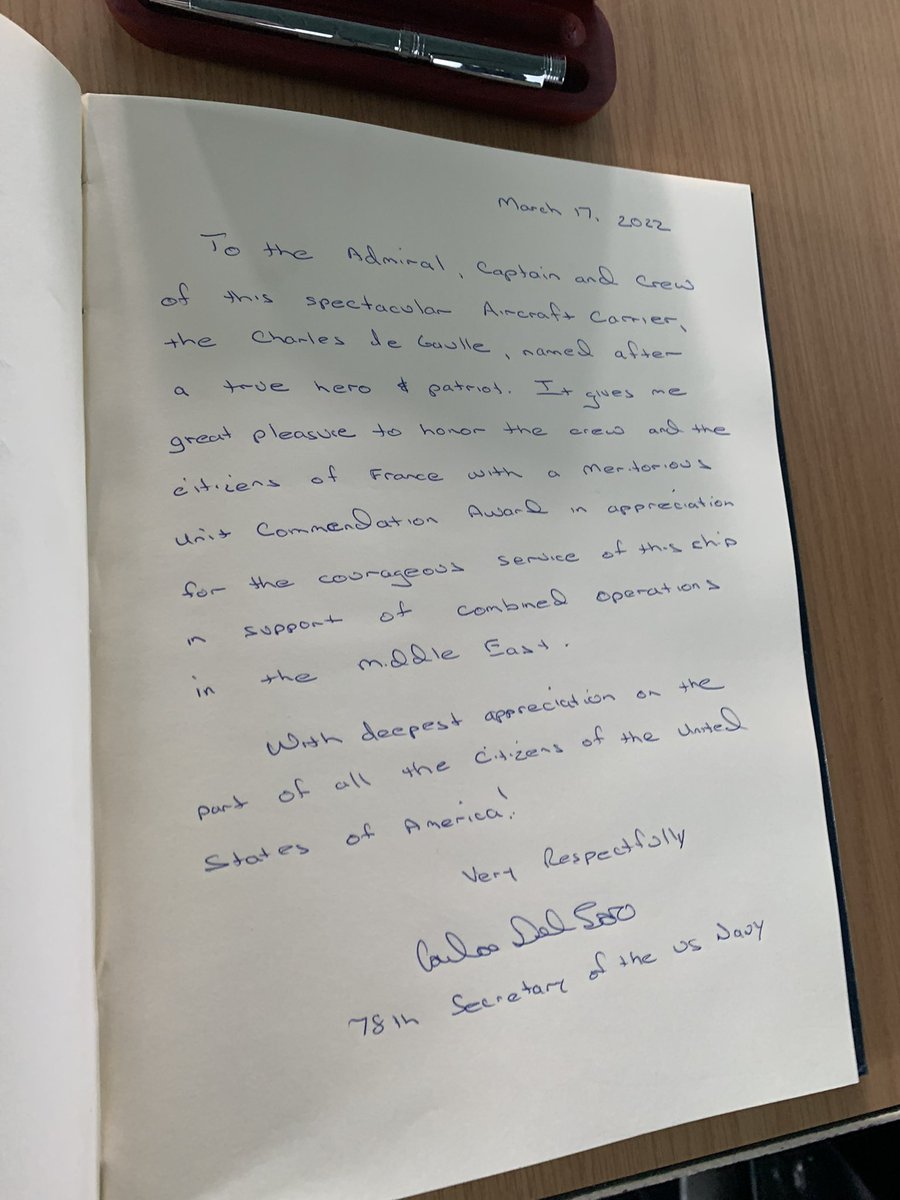 March 17, 2022
To the Admiral, Captain and Crew
of this spectacular Aircraft Carrier,
the Charles de Gaulle, named after
a true hero & patriot. It gives me
great pleasure to honor the crew and the
citizens of France with a Meritorious
Unit Commendation Award in appreciation
for the courageous service of this ship
in support of combined operations
in the Middle East.
With deepest appreciation on the
part of all the citizens of the United
States of America!
Very Respectfully
Carlos Del Toro
78th Secretary of the US Navy